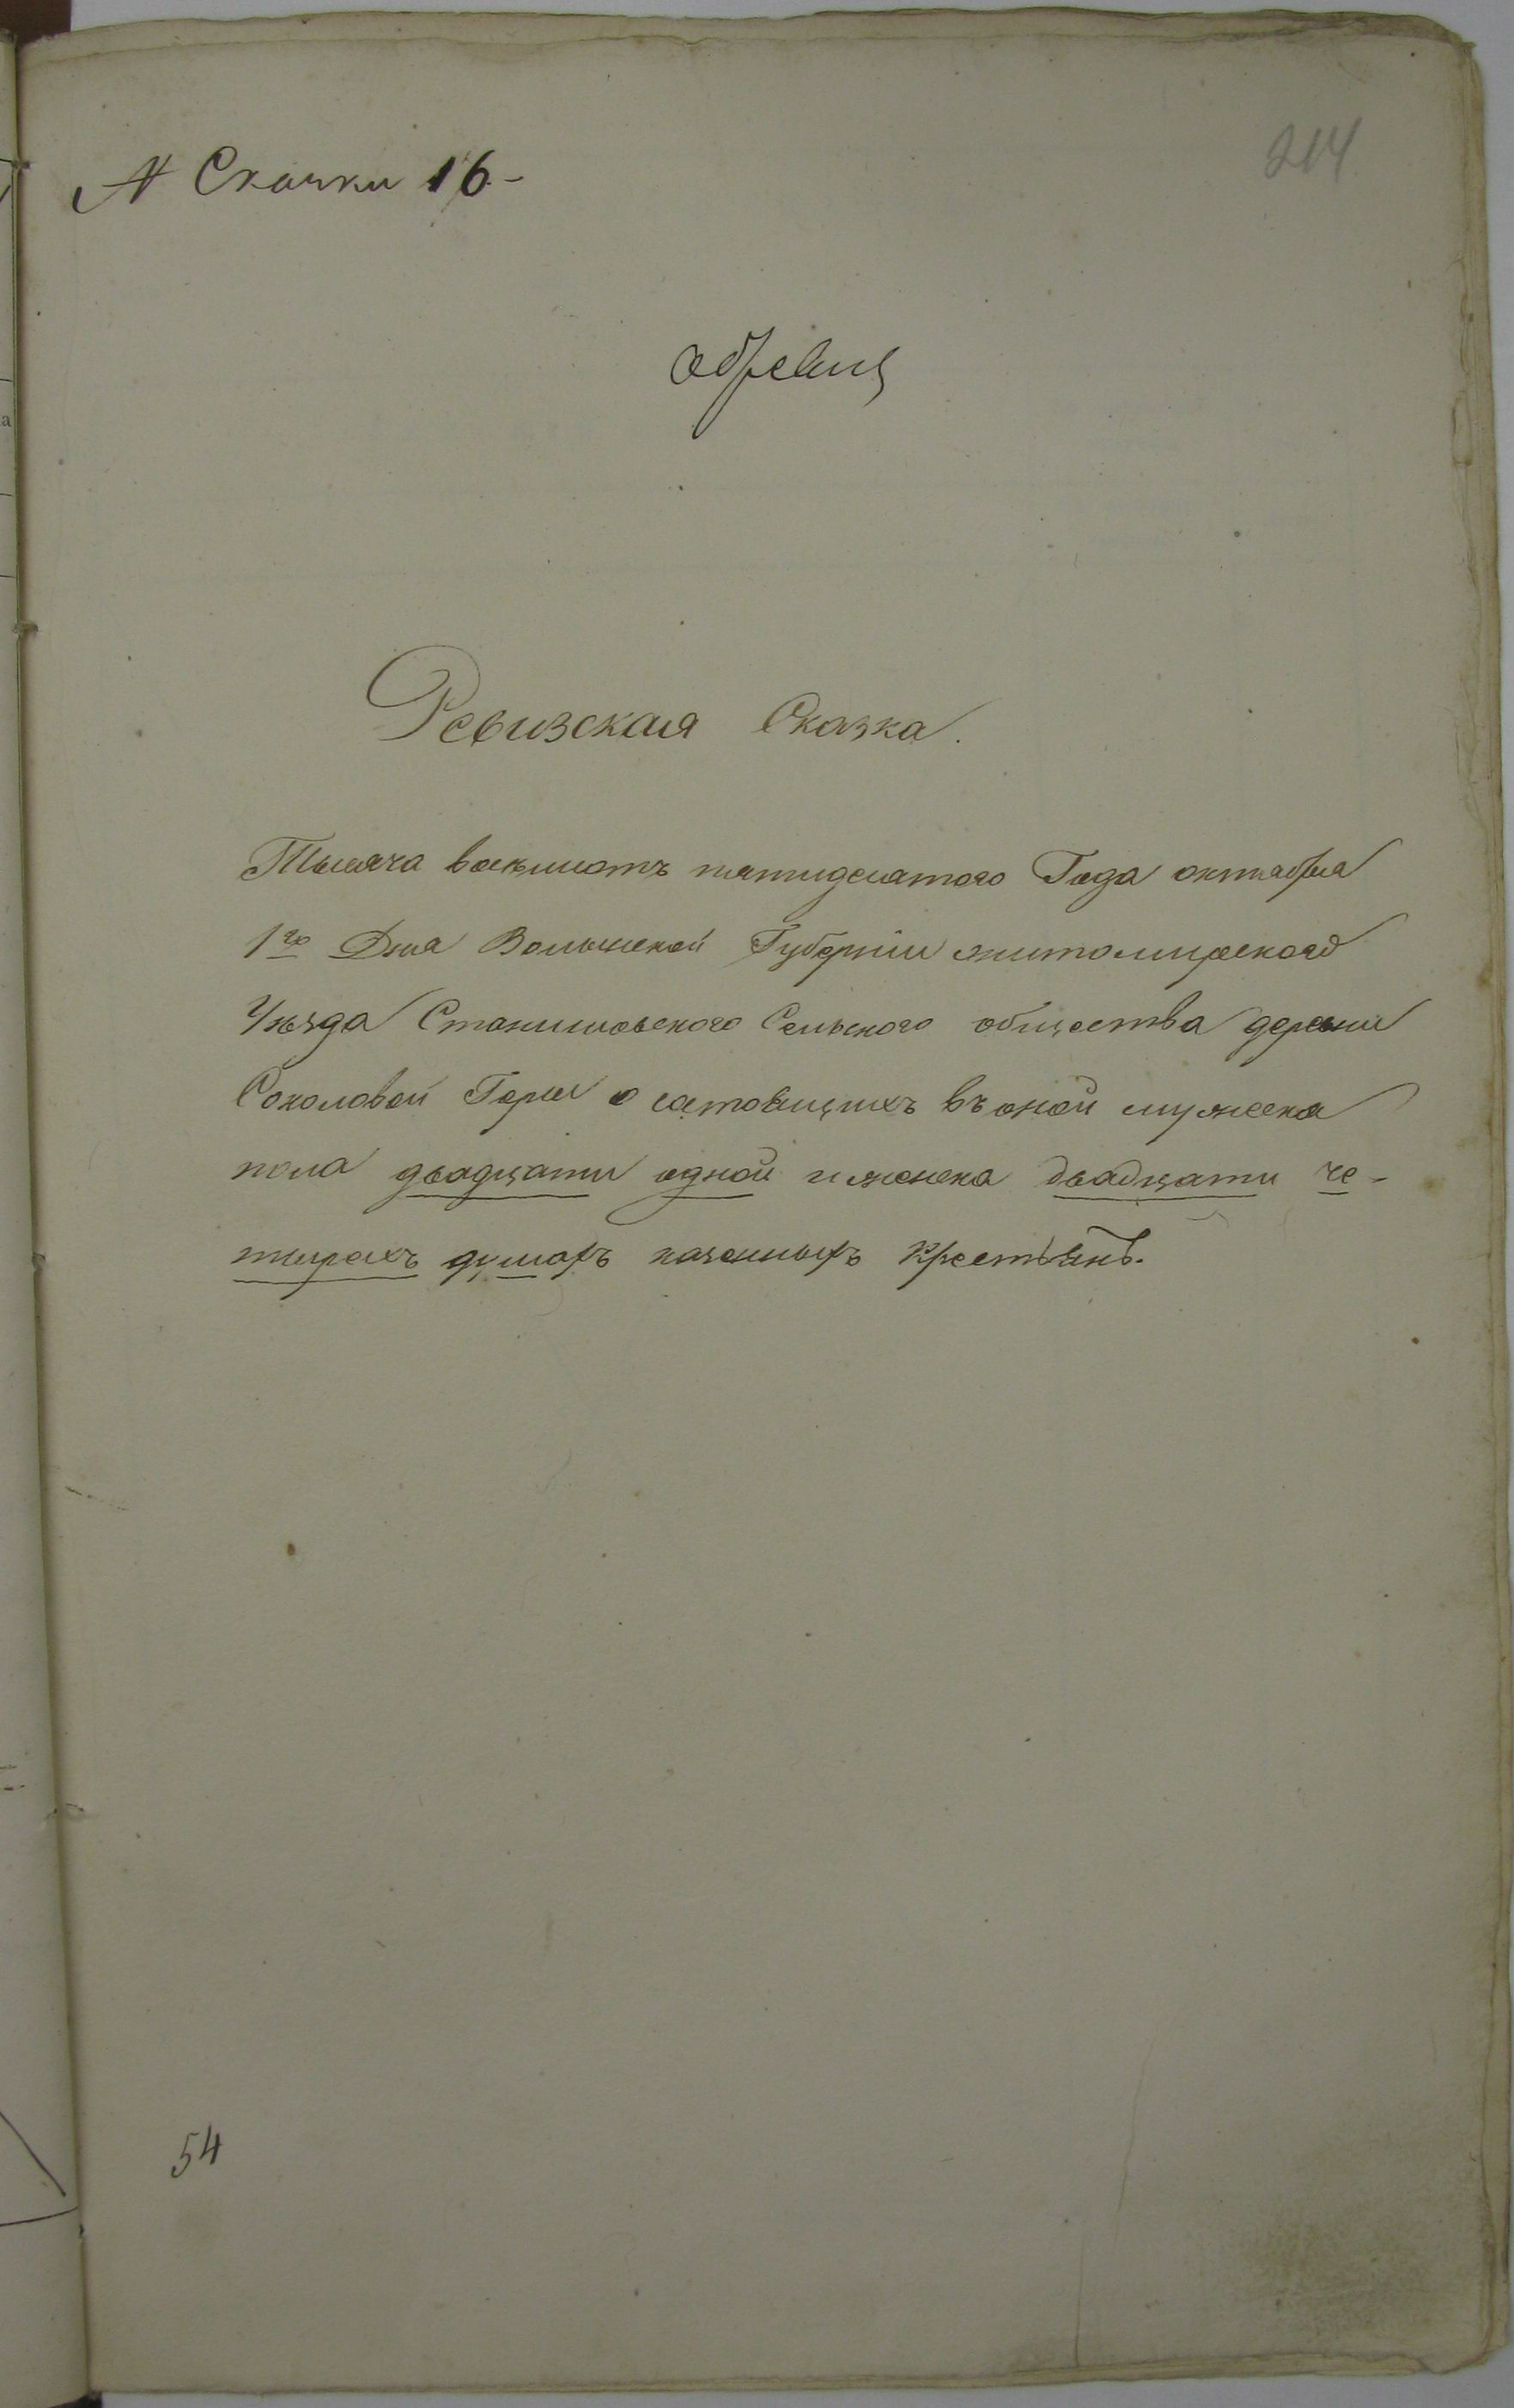 № Сказки 16-
214
Ревизская Сказка.
Тысяча восьмсотъ пятидесятого Года октября
1го Дня Волынской Губерніи житомирского
Уѣзда Станишовского Сельского общества деревни
Соколовой Горы о састоящихъ въ оной мужеска
пола двадцати одной и женска двадцати че-
тырехъ душахъ казенныхъ крестьянъ.
54